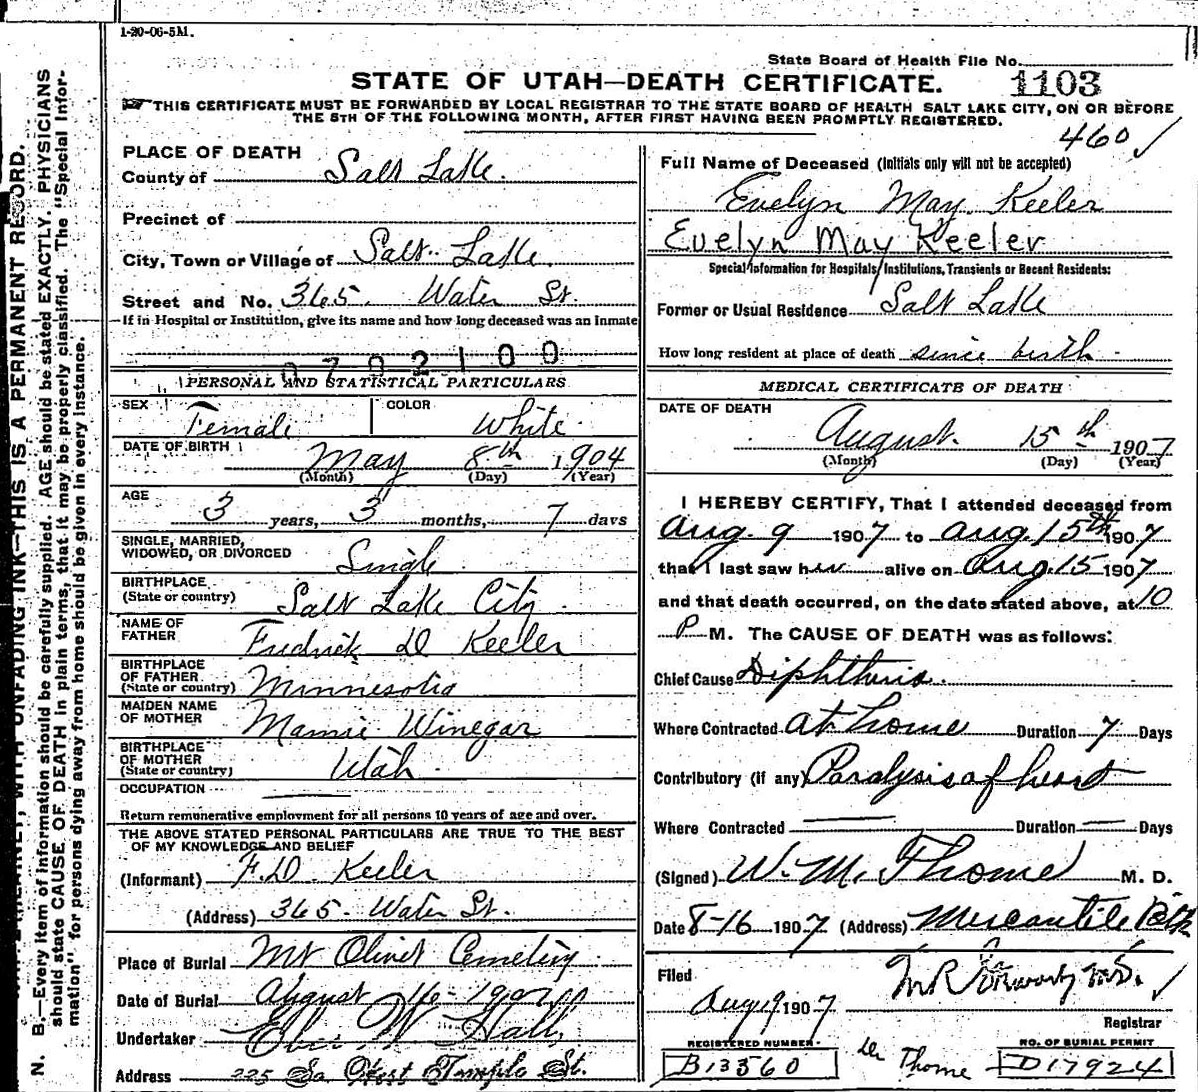 1-20-06-5M.
State Board of Health File No.
STATE OF UTAH—DEATH CERTIFICATE. 1103
THIS CERTIFICATE MUST BE FORWARDED BY LOCAL REGISTRAR TO THE STATE BOARD OF HEALTH SALT LAKE CITY, ON OR BEFORE
THE 5TH OF THE FOLLOWING MONTH, AFTER FIRST HAVING BEEN PROMPTLY REGISTERED.
460 ✓
PLACE OF DEATH
County of Salt Lake.
Precinct of
City, Town or Village of Salt Lake.
Street and No. 365. Water St.
If in Hospital or Institution, give its name and how long deceased was an inmate
0702100
PERSONAL AND STATISTICAL PARTICULARS
SEX Female COLOR White
DATE OF BIRTH May 8th 1904
(Month) (Day) (Year)
AGE
3 years, 3 months, 7 days
SINGLE, MARRIED,
WIDOWED, OR DIVORCED Single
BIRTHPLACE
(State or country) Salt Lake City
NAME OF
FATHER Fredrick D Keeler
BIRTHPLACE
OF FATHER
(State or country) Minnesotia
MAIDEN NAME
OF MOTHER Mamie Winegar
BIRTHPLACE
OF MOTHER
(State or country) Utah.
OCCUPATION
Return remunerative employment for all persons 10 years of age and over.
THE ABOVE STATED PERSONAL PARTICULARS ARE TRUE TO THE BEST
OF MY KNOWLEDGE AND BELIEF
(Informant) F.D. Keeler
(Address) 365. Water St.
Place of Burial Mt Olivet Cemetery
Date of Burial August 16- 1907
Undertaker Eber W Hall,
Address 225 So West Temple St.
Full Name of Deceased (Initials only will not be accepted)
Evelyn May Keeler
Evelyn May Keeler
Special Information for Hospitals, Institutions, Transients or Recent Residents:
Former or Usual Residence Salt Lake
How long resident at place of death since birth
MEDICAL CERTIFICATE OF DEATH
DATE OF DEATH
August 15th 1907
(Month) (Day) (Year)
I HEREBY CERTIFY, That I attended deceased from
Aug. 9 1907 to Aug. 15th 1907
that I last saw her alive on Aug. 15 1907
and that death occurred, on the date stated above, at 10
P M. The CAUSE OF DEATH was as follows:
Chief Cause Diphtheria.
Where Contracted at home Duration 7 Days
Contributory (if any) Paralysis of heart
Where Contracted Duration Days
(Signed) W. M. Thome M. D.
Date 8-16 1907 (Address) Mercantile
Filed
Aug 19 1907
Registrar
REGISTERED NUMBER
B13360
Dr Thome
NO. OF BURIAL PERMIT
D17924
N. B.—Every item of information should be carefully supplied. AGE should be stated EXACTLY. PHYSICIANS
should state CAUSE OF DEATH in plain terms, that it may be properly classified. The "Special Infor-
mation" for persons dying away from home should be given in every instance.
WITH UNFADING INK—THIS IS A PERMANENT RECORD.